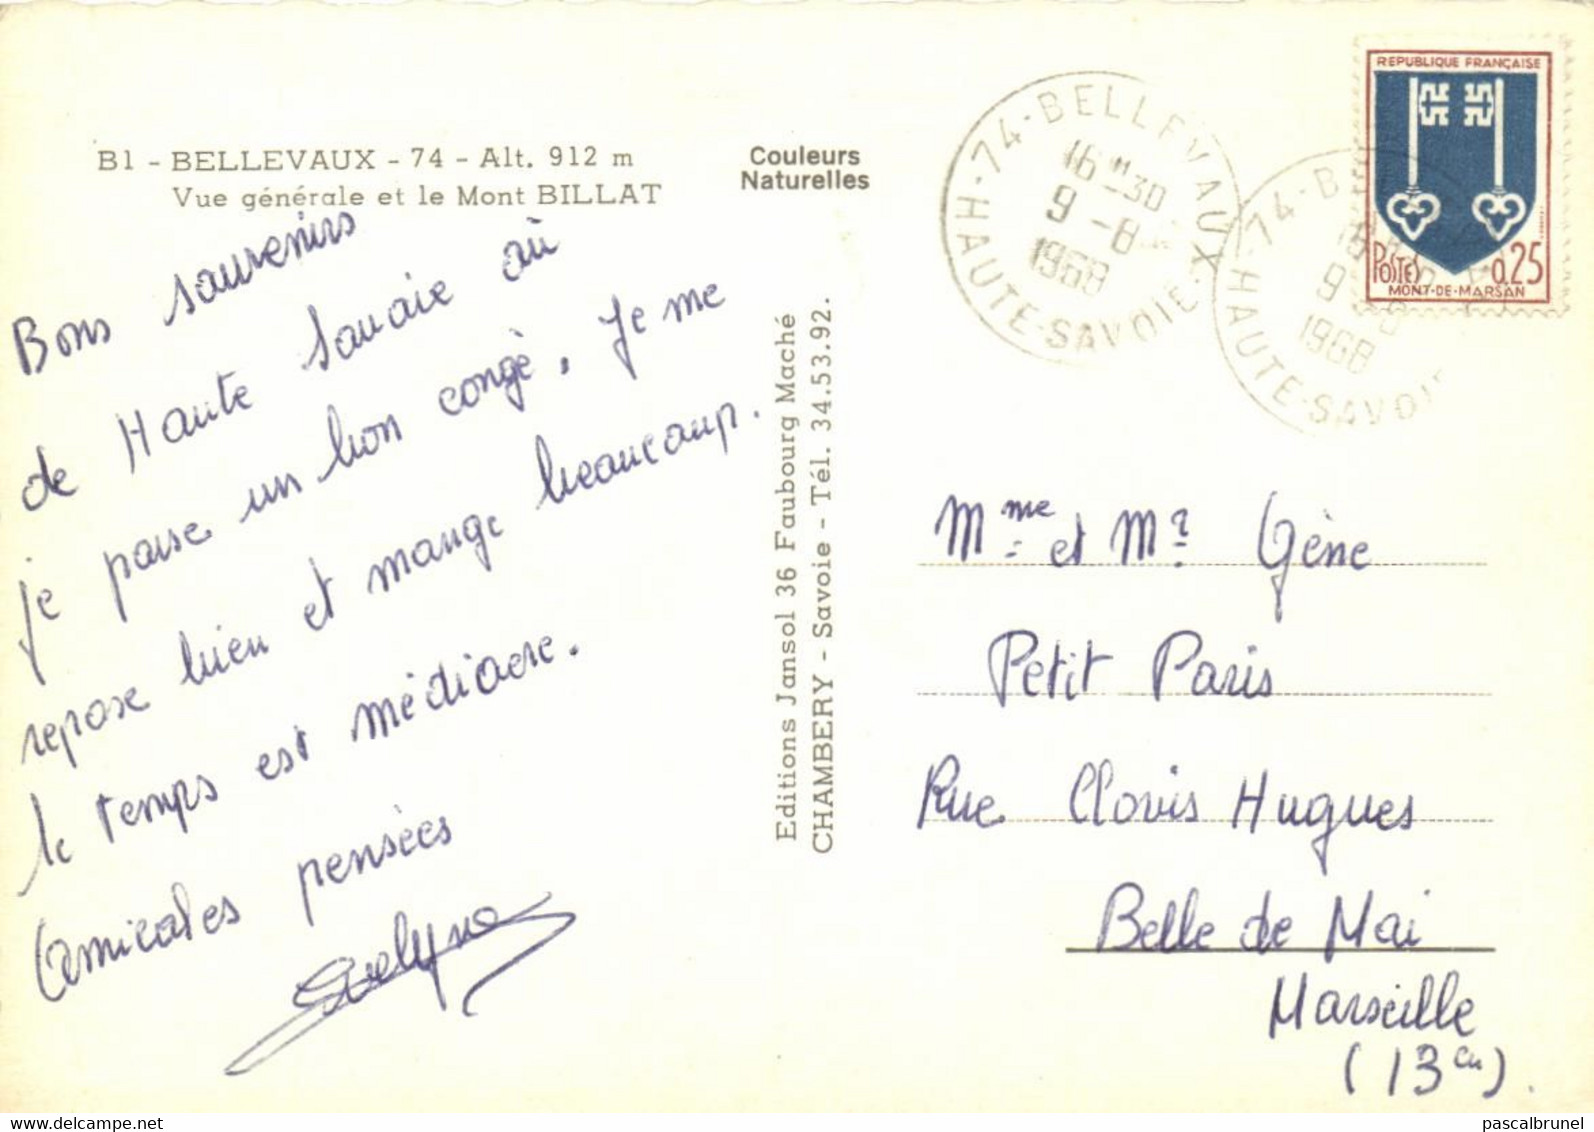 B1 - BELLEVAUX - 74 - Alt. 912 m
Vue générale et le Mont BILLAT
Couleurs
Naturelles
Bons souvenirs
de Haute Savoie où
je passe un bon congé. Je me
repose bien et mange beaucoup.
le temps est médiocre.
Amicales pensées
Evelyne
Editions Jansol 36 Faubourg Maché
CHAMBERY - Savoie - Tél. 34.53.92.
74-BELLEVAUX
16H30
9-8
1968
HAUTE-SAVOIE
74-B
9
1968
HAUTE-SAVOIE
REPUBLIQUE FRANÇAISE
POSTES 0,25
MONT-DE-MARSAN
Mme et Mr Gène
Petit Paris
Rue Clovis Hugues
Belle de Mai
Marseille
(13
pascalbrunel